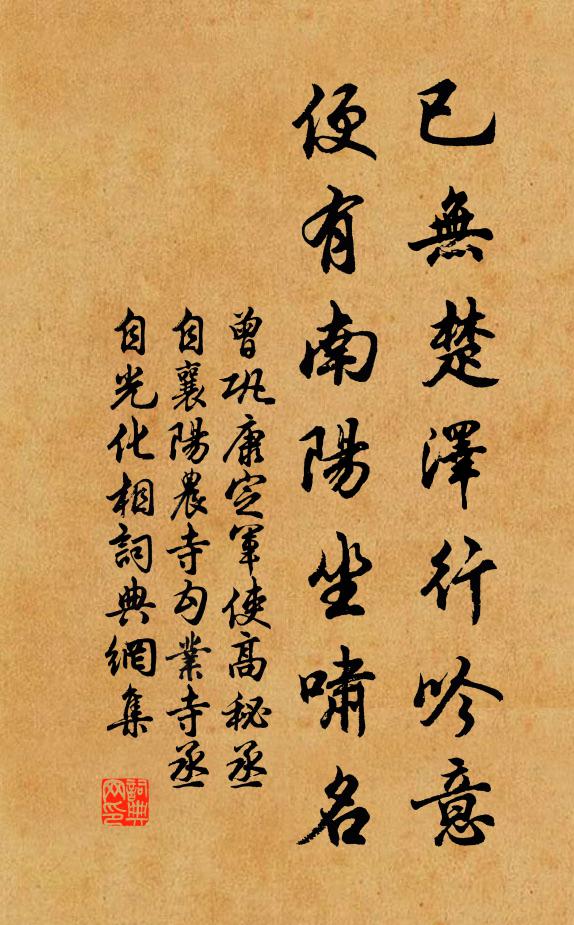 已無楚澤行吟意
便有南陽坐嘯名
曾巩康定軍使高秘丞
自襄陽農寺勾業寺丞
自光化相詞典網集
詞典
网印